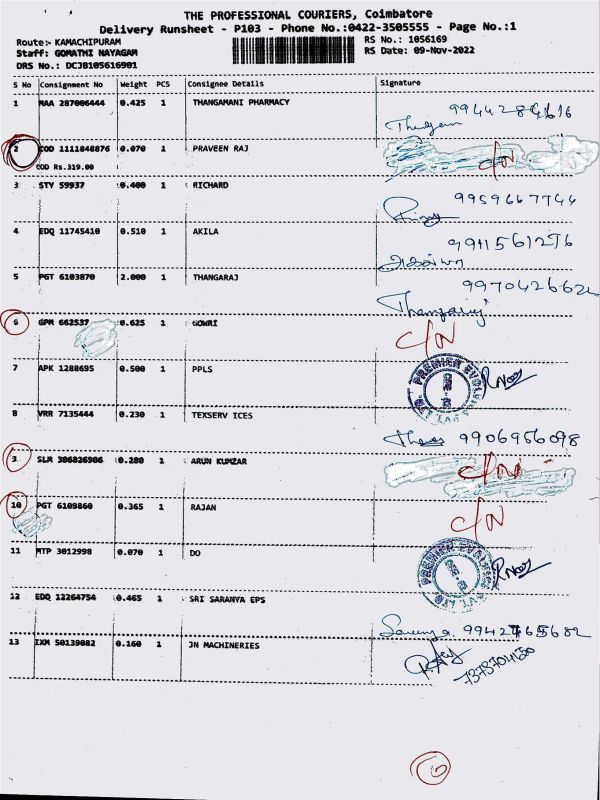 THE PROFESSIONAL COURIERS, Coimbatore
Delivery Runsheet - P103 - Phone No.:0422-3505555 - Page No.:1
Route:- KAMACHIPURAM
RS No.: 1056169
Staff: GOMATHI NAYAGAM
RS Date: 09-Nov-2022
DRS No.: DCJB105616901
S No Consignment No Weight PCS Consignee Details Signature
1 MAA 287006444 0.425 1 THANGAMANI PHARMACY
2 COD 1111848876 0.070 1 PRAVEEN RAJ C/N
COD Rs.319.00
3 STY 59937 0.400 1 RICHARD 9959667744
4 EDQ 11745410 0.510 1 AKILA 9911561276
5 PGT 6103870 2.000 1 THANGARAJ 9970426622
Thangaraj
6 GPM 662537 0.625 1 GOWRI C/N
7 APK 1288695 0.500 1 PPLS
PREMIER EVOLV
8 VRR 7135444 0.230 1 TEXSERV ICES
9906956098
9 SLM 306826906 0.280 1 ARUN KUMZAR C/N
10 PGT 6109860 0.365 1 RAJAN C/N
11 MTP 3012998 0.070 1 DO
PREMIER EVOLV
12 EDQ 12264754 0.465 1 SRI SARANYA EPS
Saranya
13 IXM 50139082 0.160 1 JN MACHINERIES
7373704150